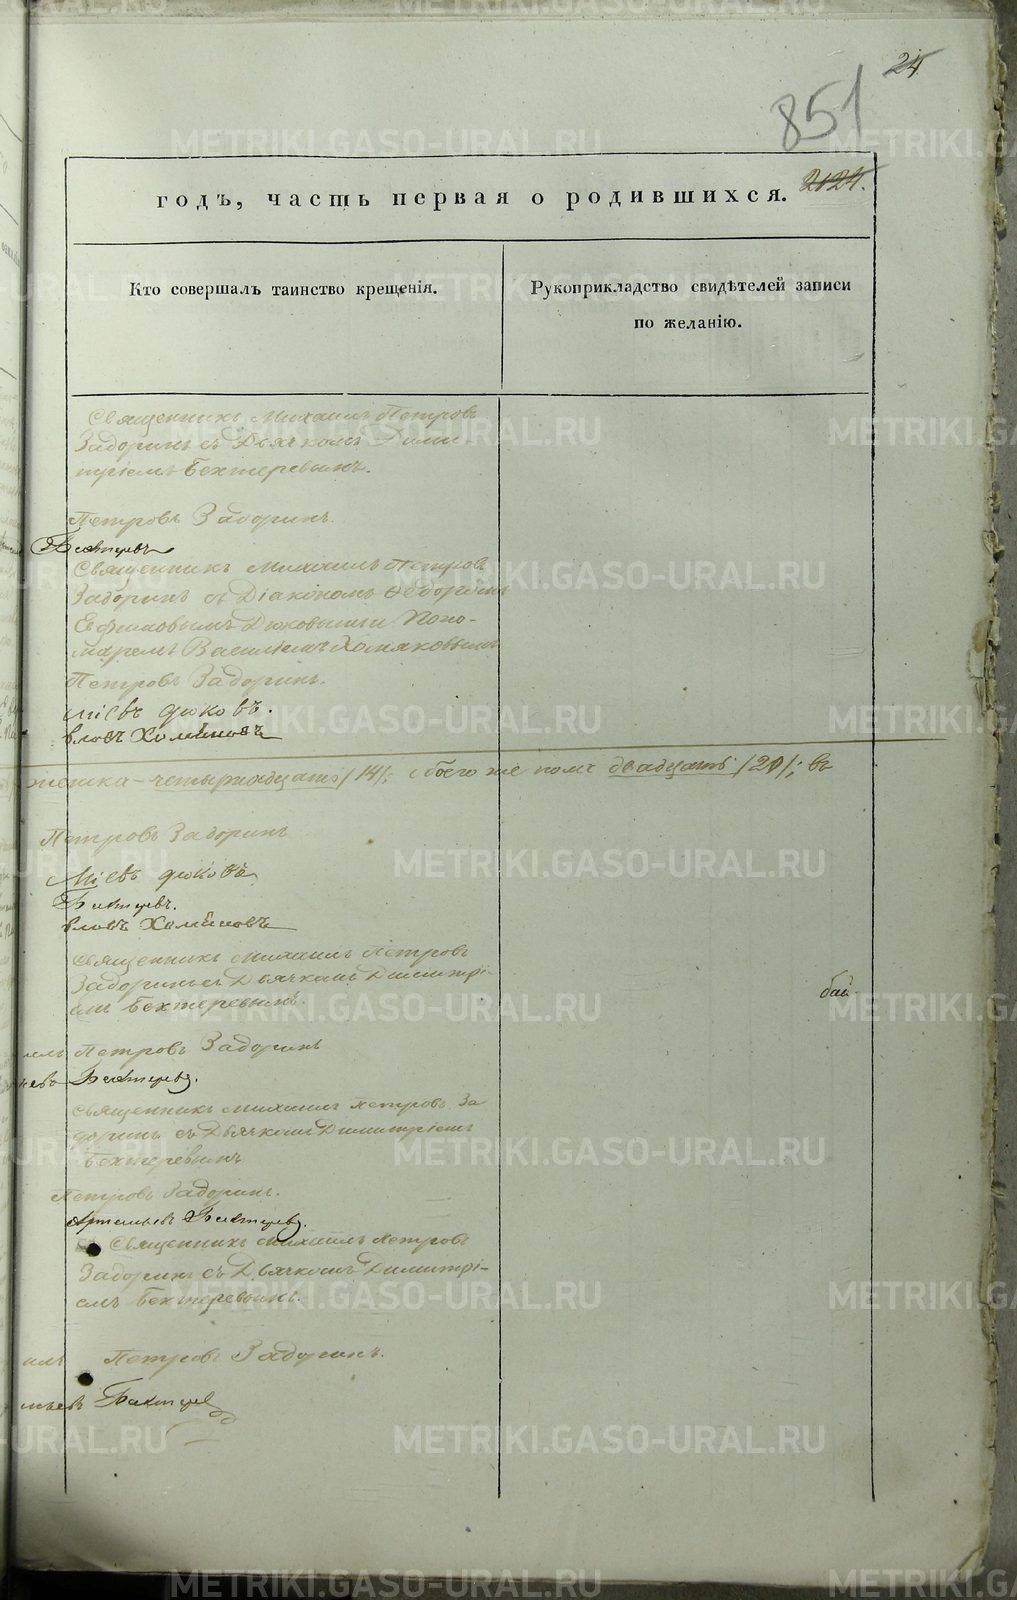 24
851
годъ, часть первая о родившихся. 2124.
Кто совершалъ таинство крещенія.
Рукоприкладство свидѣтелей записи
по желанію.
Священникъ Михаилъ Петровъ
Задоринъ съ Дьячкомъ Дими
тріемъ Бехтеревымъ.
Петровъ Задоринъ.
Священникъ Михаилъ Петровъ
Задоринъ съ Діакономъ Ѳедоромъ
Евфимовымъ Дюковымъ и Поно-
маремъ Василіемъ Хомяковымъ
Петровъ Задоринъ.
міевъ Дюковъ.
вловъ Хомяковъ
женска - четырнадцать /14/; обоего же пола двадцать /20/; въ
Петровъ Задоринъ
міевъ Дюковъ
вловъ Хомяковъ
Священникъ Михаилъ Петровъ
Задоринъ съ Дьячкомъ Димитрі-
емъ Бехтеревымъ.
бай
Петровъ Задоринъ
Священникъ Михаилъ Петровъ За
доринъ съ Дьячкомъ Димитріемъ
Бехтеревымъ
Петровъ Задоринъ.
Священникъ Михаилъ Петровъ
Задоринъ съ Дьячкомъ Димитрі-
емъ Бехтеревымъ.
Петровъ Задоринъ.
METRIKI.GASO-URAL.RU